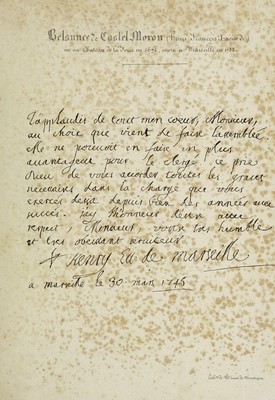 Belsunce de Castel Moron (Henri François Xavier de)
né au Château de la Force en 1671, mort à Marseille en 1755.
J'applaudis de tout mon coeur, Monsieur,
au choix que vient de faire l'assemblée
Elle ne pouvoit en faire un plus
avantageux pour le clergé. je prie
Dieu de vous accorder toutes les graces
necessaires dans la charge que vous
exercés deja depuis bien des années avec
succés. j'ay l'honneur d'être avec
respect, Monsieur, votre tres humble
et tres obeissant serviteur
+ henry Ev. de marseille
a marseille le 30 mars 1745